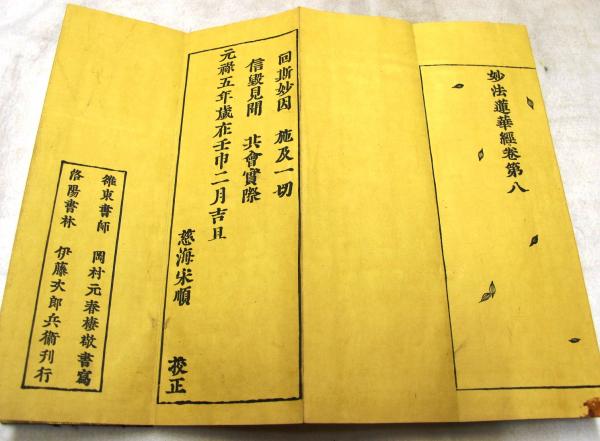 妙法蓮華經卷第八
回斯妙因　施及一切
信毀見聞　共會實際
元祿五年歲在壬申二月吉旦
慈海宋順　校正
雒東書師　岡村元春棲敬書寫
洛陽書林　伊藤次郎兵衞刊行